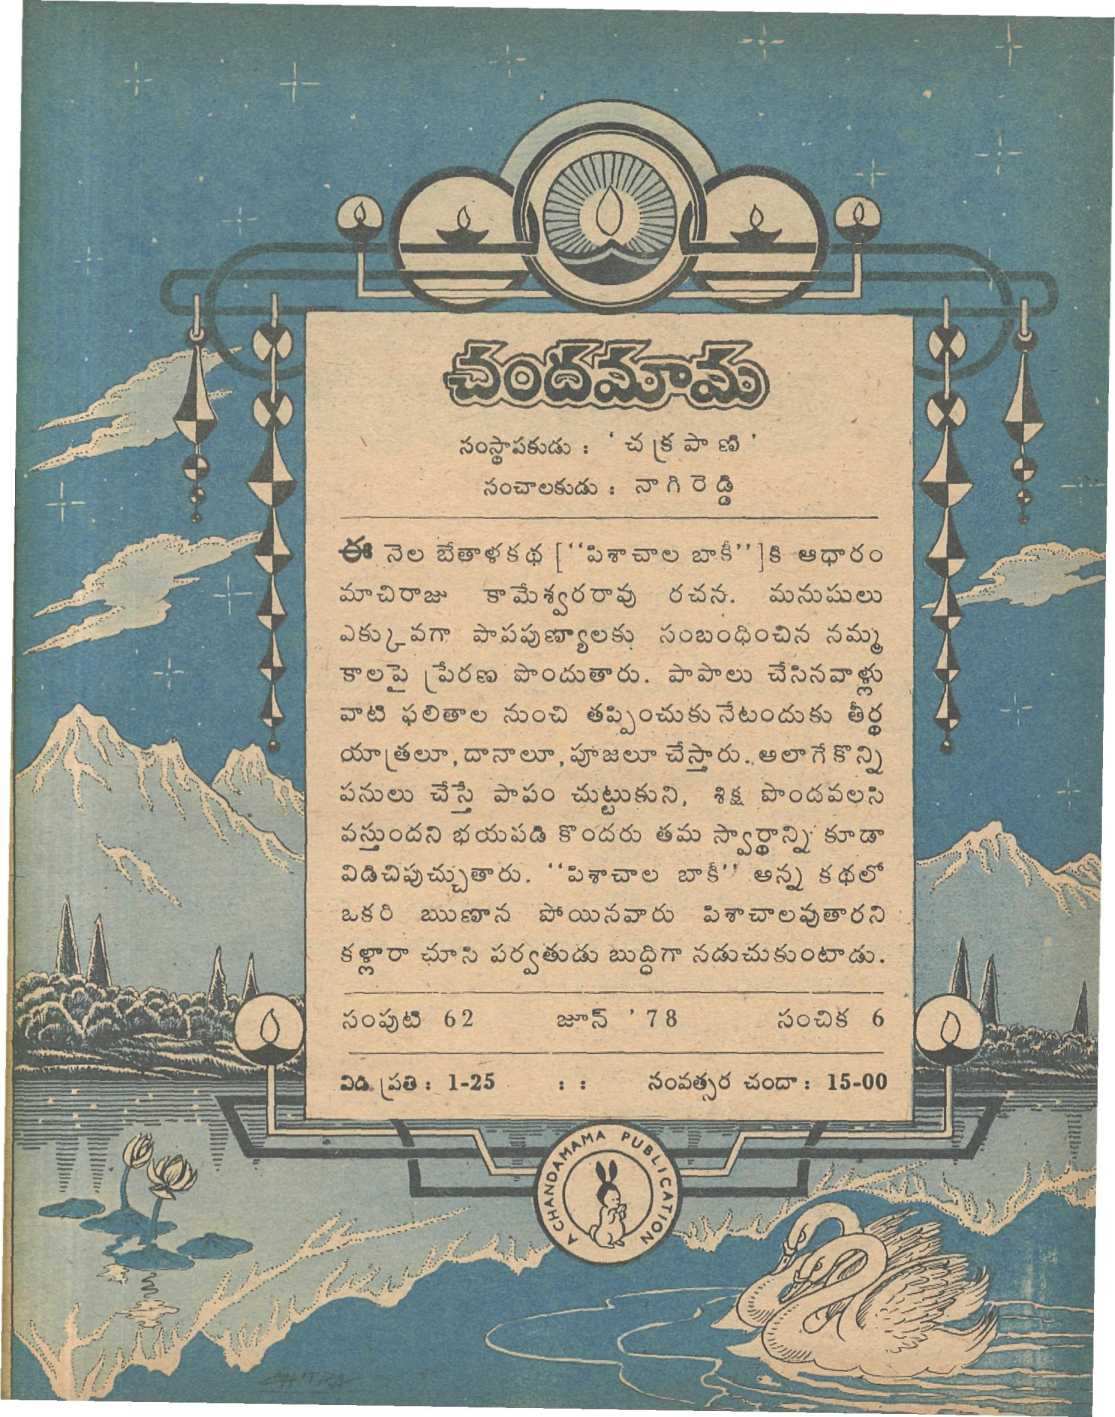 చందమామ
సంస్థాపకుడు : ' చక్రపాణి '
సంచాలకుడు : నాగిరెడ్డి
ఈ నెల బేతాళకథ [''పిశాచాల బాకీ'']కి ఆధారం
మాచిరాజు కామేశ్వరరావు రచన. మనుషులు
ఎక్కువగా పాపపుణ్యాలకు సంబంధించిన నమ్మ
కాలపై ప్రేరణ పొందుతారు. పాపాలు చేసినవాళ్లు
వాటి ఫలితాల నుంచి తప్పించుకునేటందుకు తీర్థ
యాత్రలూ, దానాలూ, పూజలూ చేస్తారు. అలాగే కొన్ని
పనులు చేస్తే పాపం చుట్టుకుని, శిక్ష పొందవలసి
వస్తుందని భయపడి కొందరు తమ స్వార్థాన్ని కూడా
విడిచిపుచ్చుతారు. ''పిశాచాల బాకీ'' అన్న కథలో
ఒకరి ఋణాన పోయినవారు పిశాచాలవుతారని
కళ్లారా చూసి పర్వతుడు బుద్ధిగా నడుచుకుంటాడు.
సంపుటి 62 జూన్ '78 సంచిక 6
విడి ప్రతి : 1-25 : : సంవత్సర చందా : 15-00
A CHANDAMAMA PUBLICATION